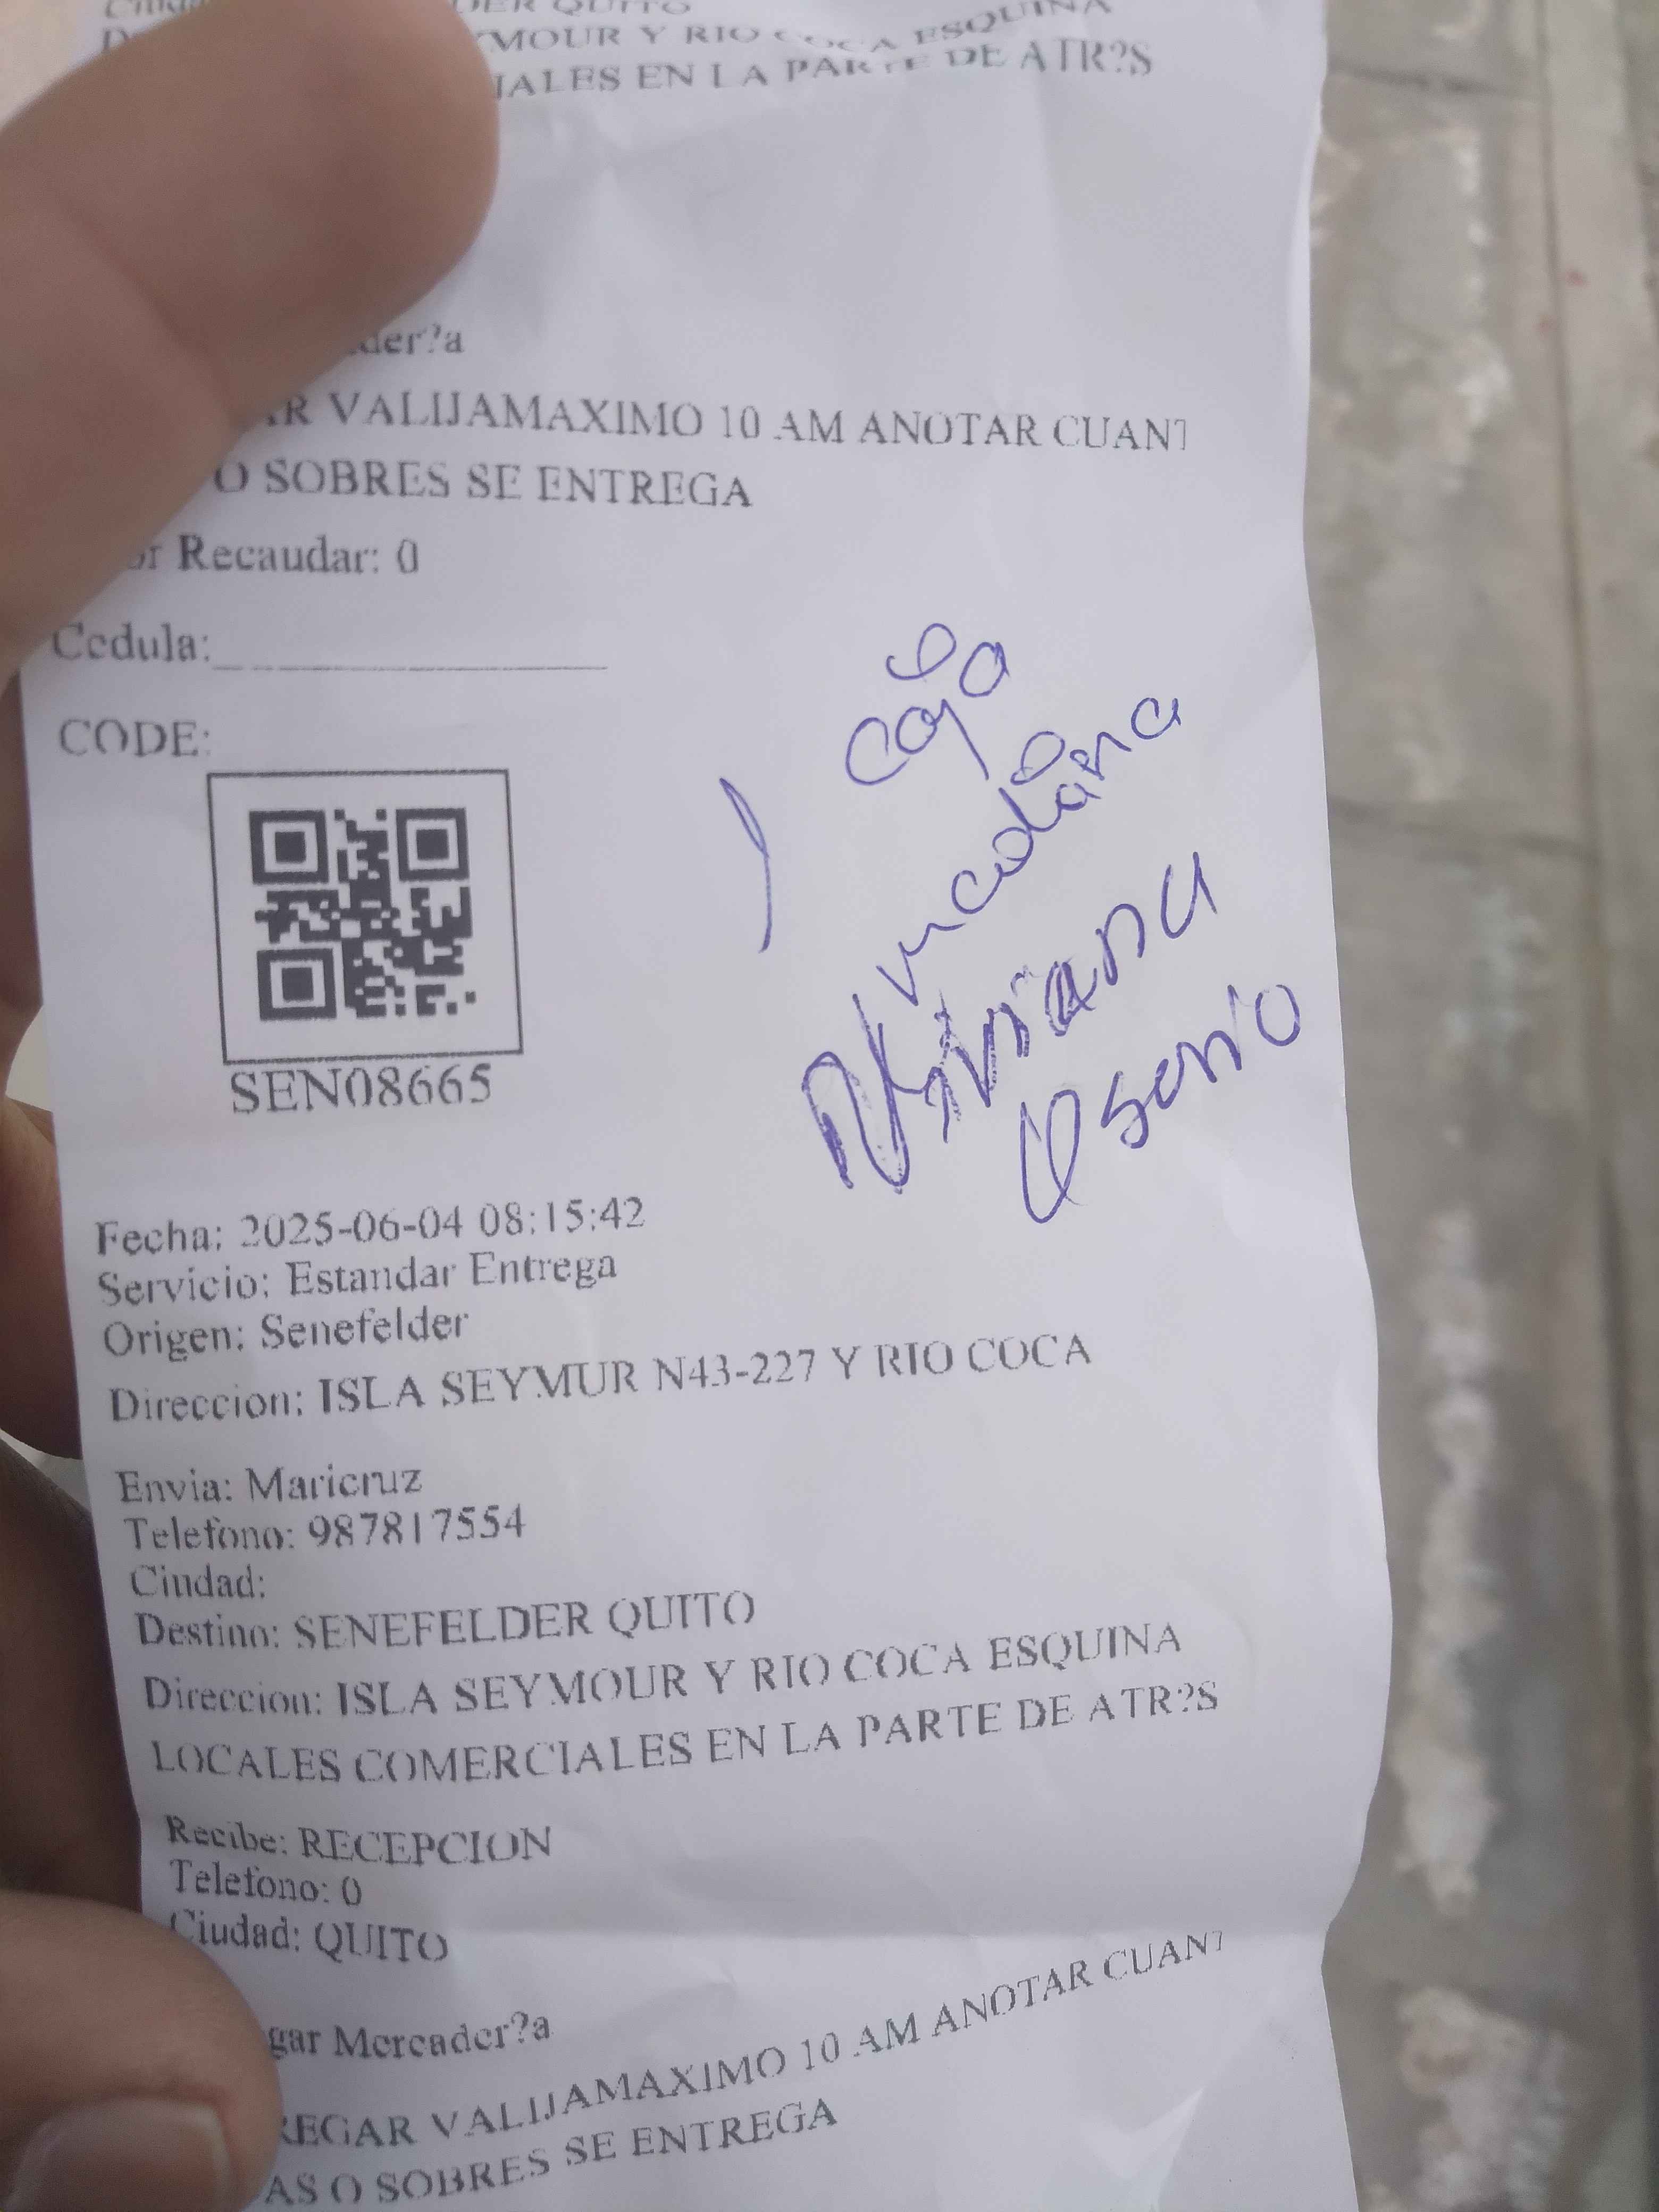 DER QUITO
YMOUR Y RIO COCA ESQUINA
IALES EN LA PARTE DE ATR?S
der?a
R VALIJAMAXIMO 10 AM ANOTAR CUANT
O SOBRES SE ENTREGA
or Recaudar: 0
Cedula:_________________
CODE:
1 caja
mediana
Viviana
Osorio
SEN08665
Fecha: 2025-06-04 08:15:42
Servicio: Estandar Entrega
Origen: Senefelder
Direccion: ISLA SEYMUR N43-227 Y RIO COCA
Envia: Maricruz
Telefono: 987817554
Ciudad:
Destino: SENEFELDER QUITO
Direccion: ISLA SEYMOUR Y RIO COCA ESQUINA
LOCALES COMERCIALES EN LA PARTE DE ATR?S
Recibe: RECEPCION
Telefono: 0
Ciudad: QUITO
gar Mercader?a
REGAR VALIJAMAXIMO 10 AM ANOTAR CUANT
AS O SOBRES SE ENTREGA